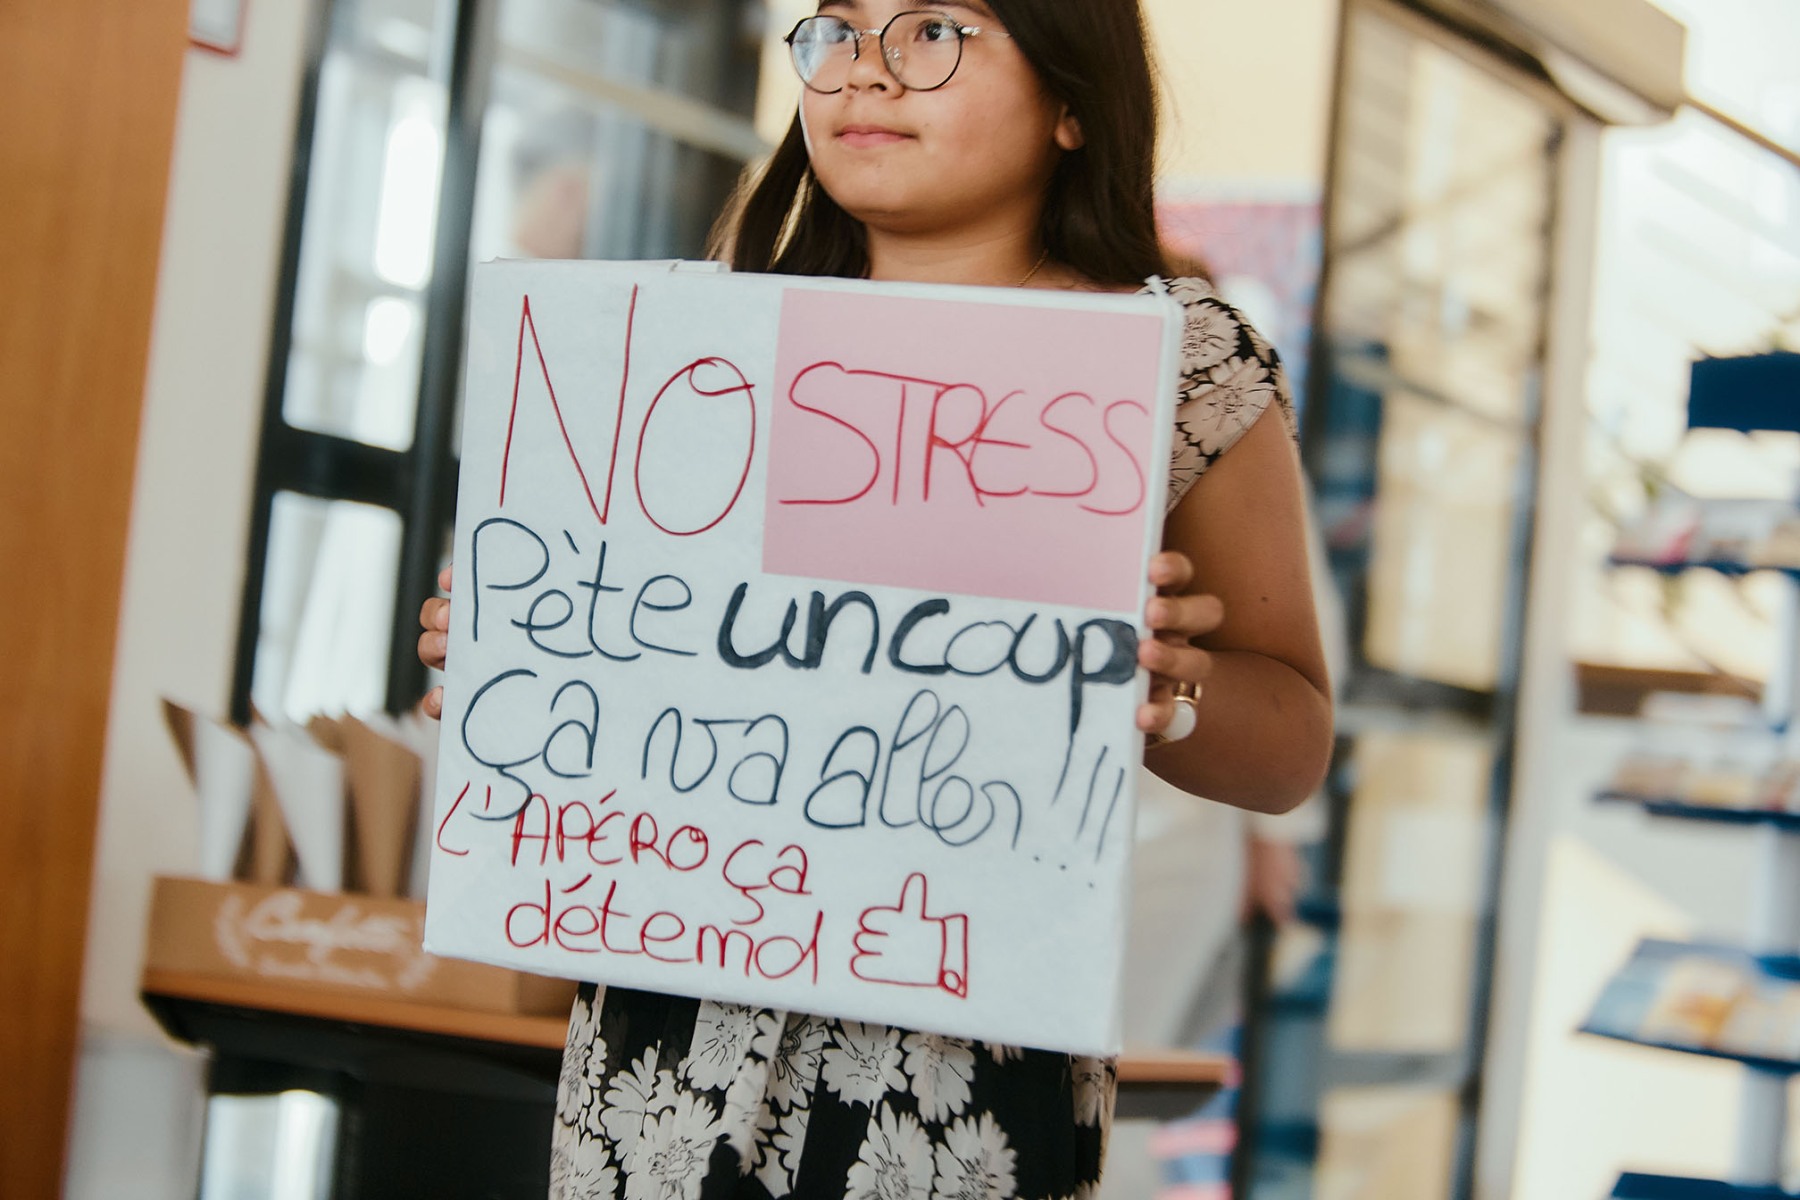 NO STRESS
Pète un coup
ça va aller...!!!
L'APÉRO ça
détemd